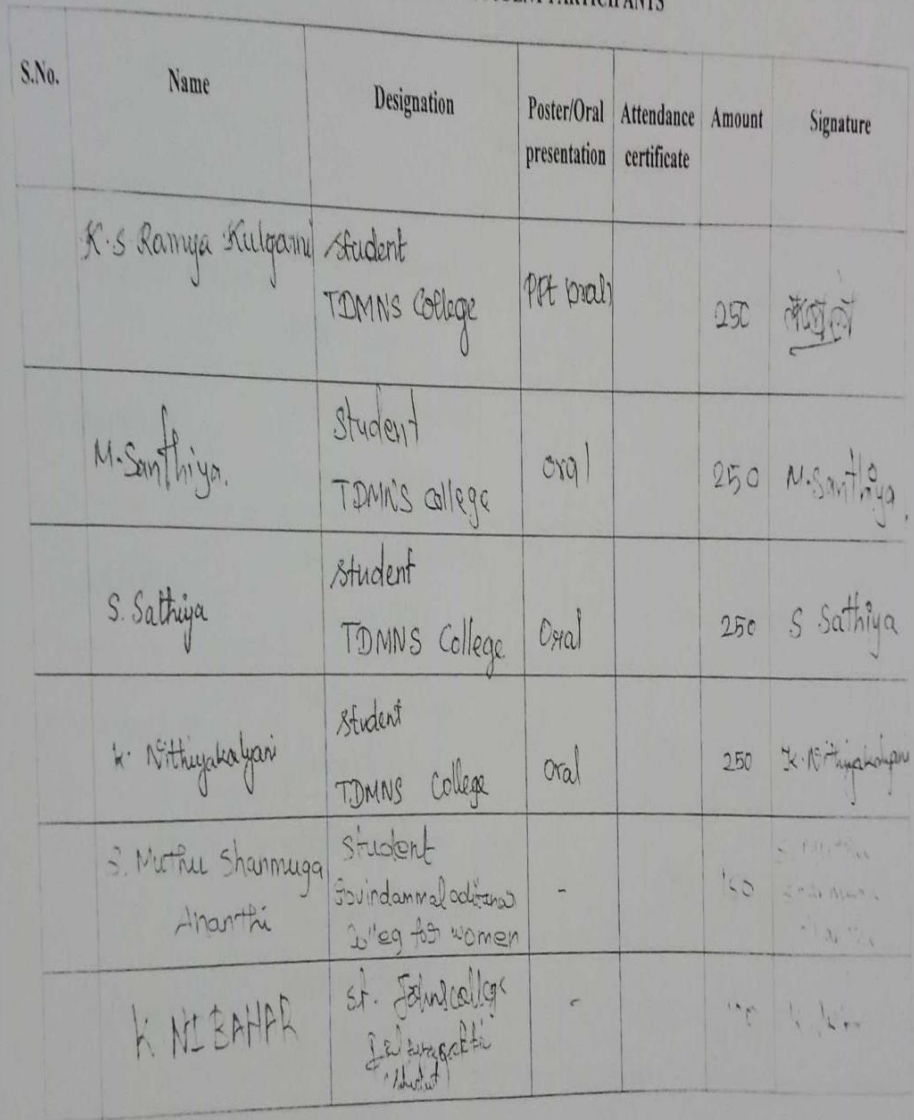 PARTICIPANTS
S.No. Name Designation Poster/Oral presentation Attendance certificate Amount Signature
K.S Ramya Kulgami Student
TDMNS College PPt (oral) 250
M.Santhiya. Student
TDMNS College oral 250 M.Santhiya.
S. Sathiya Student
TDMNS College Oral 250 S Sathiya
K. Nithiyakalyani Student
TDMNS College Oral 250 K.Nithiyakalyani
S. Muthu Shanmuga
Ananthi Student
Govindammal aditanar
Colleg for women -
K NIBAHAR St. Johns college
-